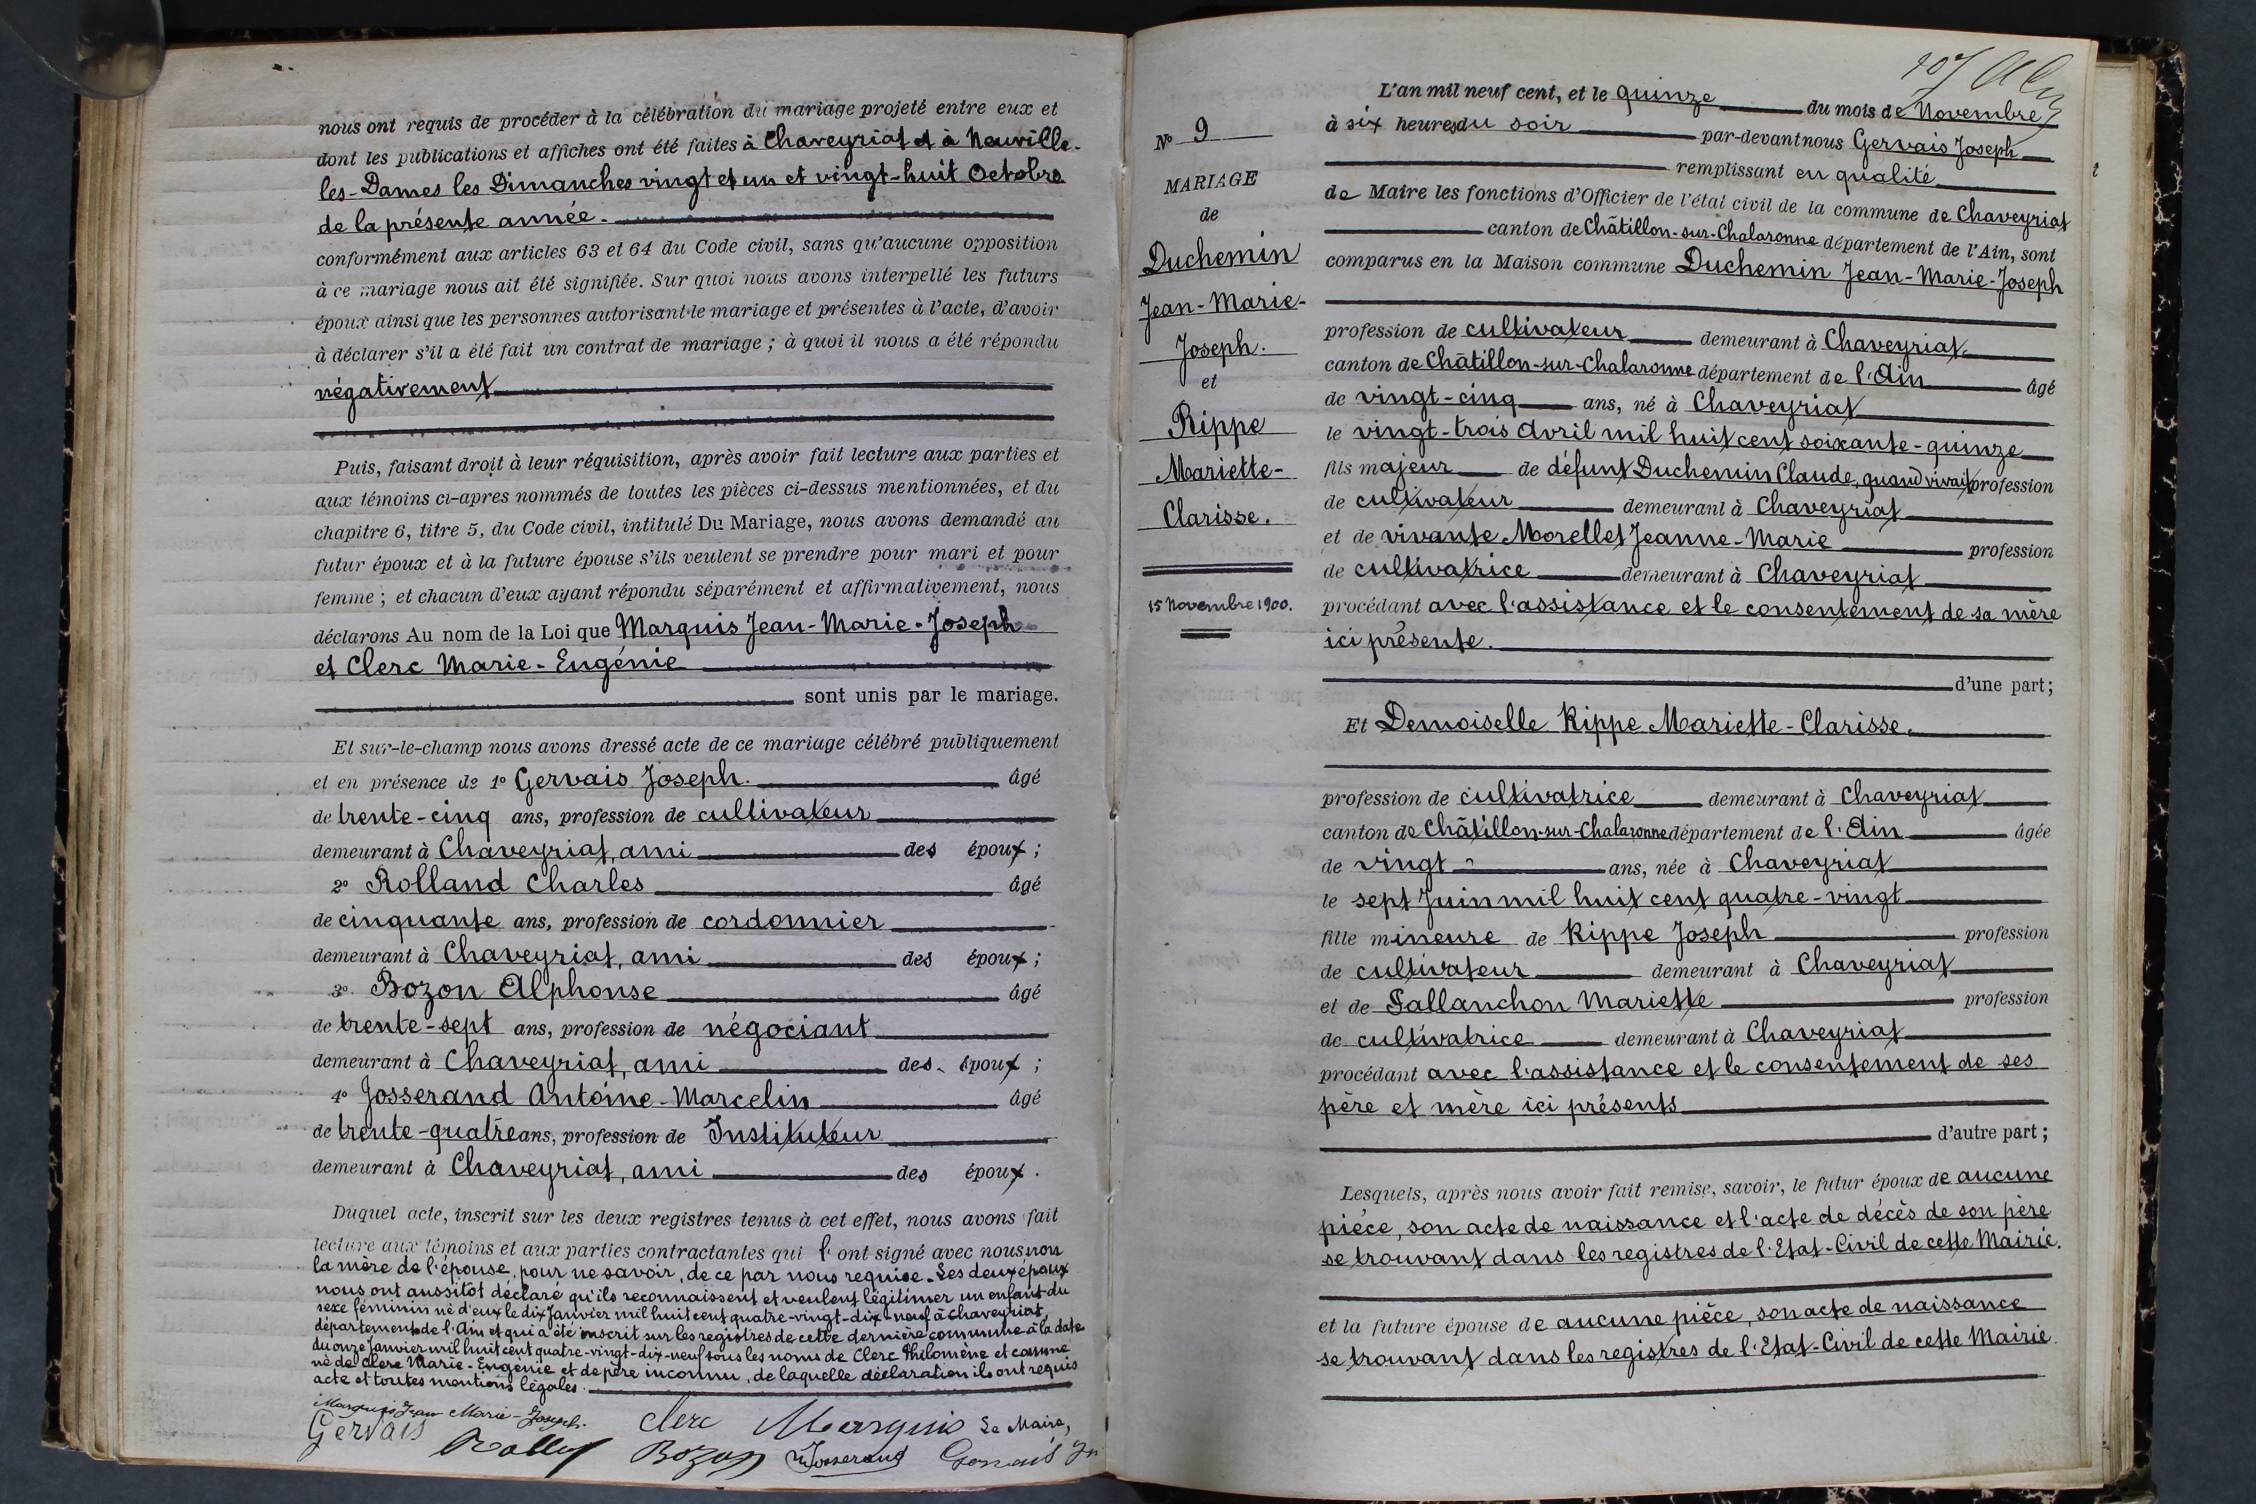 nous ont requis de procéder à la célébration du mariage projeté entre eux et
dont les publications et affiches ont été faites à Chaveyriat et à Neuville-
les-Dames les Dimanches vingt et un et vingt-huit Octobre
de la présente année.
conformément aux articles 63 et 64 du Code civil, sans qu'aucune opposition
à ce mariage nous ait été signifiée. Sur quoi nous avons interpellé les futurs
époux ainsi que les personnes autorisant le mariage et présentes à l'acte, d'avoir
à déclarer s'il a été fait un contrat de mariage ; à quoi il nous a été répondu
négativement
Puis, faisant droit à leur réquisition, après avoir fait lecture aux parties et
aux témoins ci-apres nommés de toutes les pièces ci-dessus mentionnées, et du
chapitre 6, titre 5, du Code civil, intitulé Du Mariage, nous avons demandé au
futur époux et à la future épouse s'ils veulent se prendre pour mari et pour
femme ; et chacun d'eux ayant répondu séparément et affirmativement, nous
déclarons Au nom de la Loi que Marquis Jean-Marie-Joseph
et Clerc Marie-Eugénie
sont unis par le mariage.
Et sur-le-champ nous avons dressé acte de ce mariage célébré publiquement
et en présence de 1° Gervais Joseph. âgé
de trente-cinq ans, profession de cultivateur
demeurant à Chaveyriat, ami des époux ;
2° Rolland Charles âgé
de cinquante ans, profession de cordonnier
demeurant à Chaveyriat, ami des époux ;
3° Bozon Alphonse âgé
de trente-sept ans, profession de négociant
demeurant à Chaveyriat, ami des époux ;
4° Josserand Antoine-Marcelin âgé
de trente-quatre ans, profession de Instituteur
demeurant à Chaveyriat, ami des époux.
Duquel acte, inscrit sur les deux registres tenus à cet effet, nous avons fait
lecture aux témoins et aux parties contractantes qui l'ont signé avec nous non
la mère de l'épouse, pour ne savoir, de ce par nous requise. Les deux époux
nous ont aussitôt déclaré qu'ils reconnaissent et veulent légitimer un enfant du
sexe féminin né d'eux le dix Janvier mil huit cent quatre-vingt-dix-neuf à Chaveyriat,
département de l'Ain et qui a été inscrit sur les registres de cette dernière commune à la date
du onze Janvier mil huit cent quatre-vingt-dix-neuf sous les noms de Clerc Philomène et comme
né de Clerc Marie-Eugénie et de père inconnu, de laquelle déclaration ils ont requis
acte et toutes mentions légales.
Marquis Jean Marie-Joseph. Clerc Marquis Le Maire,
Gervais Bozon Josserand Gervais Jh
N° 9
MARIAGE
de
Duchemin
Jean-Marie-
Joseph.
et
Rippe
Mariette-
Clarisse.
15 Novembre 1900.
L'an mil neuf cent, et le quinze du mois de Novembre
à six heures du soir par-devant nous Gervais Joseph
remplissant en qualité
de Maire les fonctions d'Officier de l'état civil de la commune de Chaveyriat
canton de Châtillon-sur-Chalaronne département de l'Ain, sont
comparus en la Maison commune Duchemin Jean-Marie-Joseph
profession de cultivateur demeurant à Chaveyriat.
canton de Châtillon-sur-Chalaronne département de l'Ain âgé
de vingt-cinq ans, né à Chaveyriat
le vingt-trois Avril mil huit cent soixante-quinze
fils majeur de défunt Duchemin Claude, quand vivait profession
de cultivateur demeurant à Chaveyriat
et de vivante Morellet Jeanne-Marie profession
de cultivatrice demeurant à Chaveyriat
procédant avec l'assistance et le consentement de sa mère
ici présente.
d'une part ;
Et Demoiselle Rippe Mariette-Clarisse.
profession de cultivatrice demeurant à Chaveyriat
canton de Châtillon-sur-Chalaronne département de l'Ain âgée
de vingt ans, née à Chaveyriat
le sept Juin mil huit cent quatre-vingt
fille mineure de Rippe Joseph profession
de cultivateur demeurant à Chaveyriat
et de Pallanchon Mariette profession
de cultivatrice demeurant à Chaveyriat
procédant avec l'assistance et le consentement de ses
père et mère ici présents
d'autre part ;
Lesquels, après nous avoir fait remise, savoir, le futur époux de aucune
pièce, son acte de naissance et l'acte de décès de son père
se trouvant dans les registres de l'Etat-Civil de cette Mairie.
et la future épouse de aucune pièce, son acte de naissance
se trouvant dans les registres de l'Etat-Civil de cette Mairie.